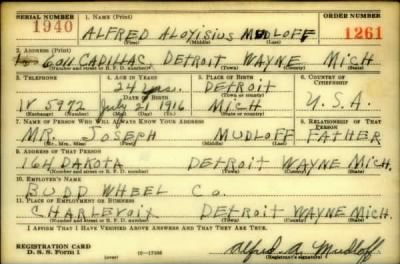 SERIAL NUMBER 1. NAME (Print) ORDER NUMBER
1940 ALFRED ALOYISIUS MUDLOFF 1261
(First) (Middle) (Last)
2. ADDRESS (Print)
6011 CADILLAC DETROIT WAYNE MICH
(Number and street or R. F. D. number) (Town) (County) (State)
3. TELEPHONE 4. AGE IN YEARS 5. PLACE OF BIRTH 6. COUNTRY OF CITIZENSHIP
24 yrs. DETROIT
DATE OF BIRTH (Town or county)
IV 5972 July 29 1916 MICH U.S.A.
(Exchange) (Number) (Mo.) (Day) (Yr.) (State or country)
7. NAME OF PERSON WHO WILL ALWAYS KNOW YOUR ADDRESS 8. RELATIONSHIP OF THAT PERSON
MR. JOSEPH MUDLOFF FATHER
(Mr., Mrs., Miss) (First) (Middle) (Last)
9. ADDRESS OF THAT PERSON
164 DAKOTA DETROIT WAYNE MICH.
(Number and street or R. F. D. number) (Town) (County) (State)
10. EMPLOYER'S NAME
BUDD WHEEL Co.
11. PLACE OF EMPLOYMENT OR BUSINESS
CHARLEVOIX DETROIT WAYNE MICH.
(Number and street or R. F. D. number) (Town) (County) (State)
I AFFIRM THAT I HAVE VERIFIED ABOVE ANSWERS AND THAT THEY ARE TRUE.
REGISTRATION CARD
D. S. S. Form 1 (over) Alfred A. Mudloff
(Registrant's signature)